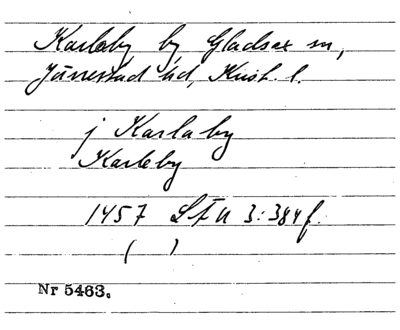 Karleby by Gladsax sn,
Järrestad hd, Krist. l.
j Karlaby
Karleby
1457 SFU 3:384f.
( )
Nr 5463.